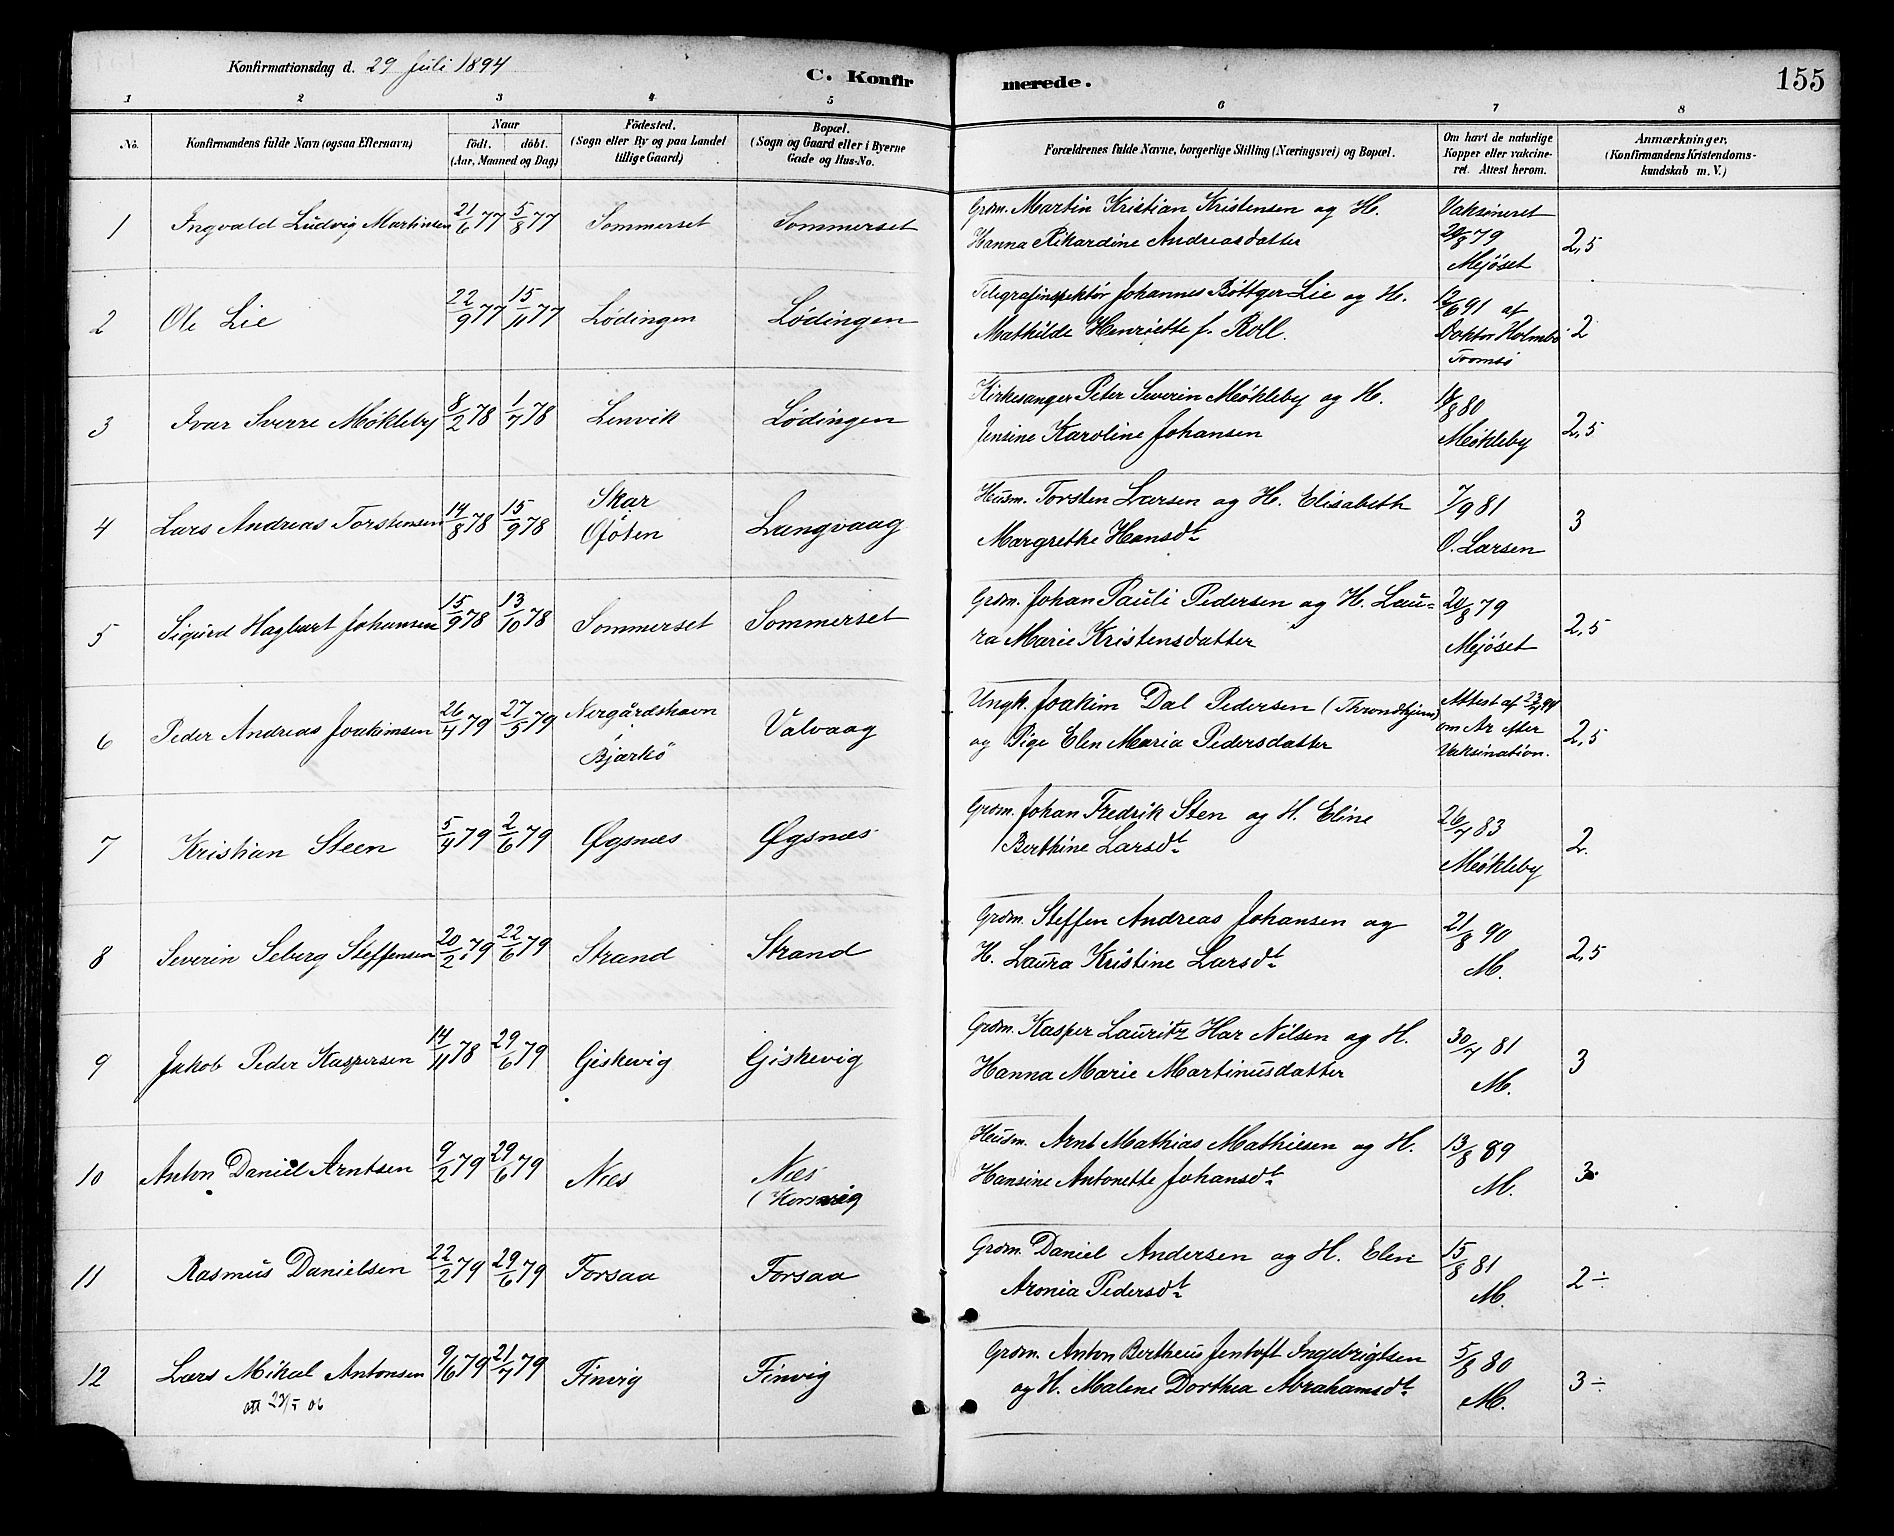 Konfirmationsdag d. 29 Juli 1894
C. Konfir
merede.
155
1 2 3 4 5 6 7 8
No.
Konfirmandens fulde Navn (ogsaa Efternavn)
Naar
födt. döbt.
(Aar, Maaned og Dag)
Födested.
(Sogn eller By og paa Landet
tillige Gaard)
Bopæl.
(Sogn og Gaard eller i Byerne
Gade og Hus-No.
Forældrenes fulde Navne, borgerlige Stilling (Næringsvei) og Bopæl.
Om havt de naturlige
Kopper eller vakcine-
ret. Attest herom.
Anmærkninger,
(Konfirmandens Kristendoms-
kundskab m. V.)
1 Ingvald Ludvig Martinsen 21/6 77 5/8 77 Sommerset Sommerset
Grdm. Martin Kristian Kristensen og H.
Hanna Rikardine Andreasdatter
Vaksineret
20/8 79
Mejöset
2,5
2 Ole Lie 22/9 77 15/11 77 Lödingen Lödingen
Telegrafinspektör Johannes Böttger Lie og H.
Mathilde Henriette f. Roll.
12/6 91 af
Doktor Holmbo
Tromsö
2
3 Ivar Sverre Mökleby 8/2 78 1/7 78 Lenvik Lödingen
Kirkesanger Peter Severin Mökleby og H.
Jensine Karoline Johansen
18/8 80
Mökleby
2,5
4 Lars Andreas Torstensen 14/8 78 15/9 78 Skar
Ofoten
Langvaag
Husm. Torsten Larsen og H. Elisabeth
Margrethe Hansdt
7/9 81
O. Larsen
3
5 Sigurd Hagbart Johansen 15/9 78 13/10 78 Sommerset Sommerset
Grdm. Johan Pauli Pedersen og H. Lau-
ra Marie Kristensdatter
20/8 79
Mejöset
2,5
6 Peder Andreas Joakimsen 26/4 79 27/5 79 Nergårdshavn
Bjarkö
Valvaag
Ungk. Joakim Dal Pedersen (Throndhjem)
og Pige Elen Maria Pedersdatter
Attest af 23/7 94
om Ar efter
Vaksination.
2,5
7 Kristian Steen 5/4 79 2/6 79 Øgsnæs Øgsnæs
Grdm. Johan Fredrik Sten og H. Eline
Berthine Larsdt
26/7 83
Mökleby
2.
8 Severin Seberg Steffensen 20/2 79 22/6 79 Strand Strand
Grdm. Steffen Andreas Johansen og
H. Laura Kristine Larsdt
21/8 90
M.
2,5
9 Jakob Peder Kaspersen 14/11 78 29/6 79 Giskevig Giskevig
Grdm. Kasper Lauritz Har Nilsen og H.
Hanna Marie Martinusdatter
30/7 81
M.
3
10 Anton Daniel Arntsen 9/2 79 29/6 79 Næs Næs
(Korsvig
Husm. Arnt Mathias Mathiesen og H.
Hansine Antonette Johansdt
13/8 89
M.
3.
11 Rasmus Danielsen 22/2 79 29/6 79 Forsaa Forsaa
Grdm. Daniel Andersen og H. Elen
Aronia Pedersdt
15/8 81
M.
2÷
12 Lars Mikal Antonsen 9/6 79 21/7 79 Finvig Finvig
Grdm. Anton Bertheus Jentoft Ingebrigtsen
og H. Malene Dorthea Abrahamsdt
5/8 80
M.
3÷